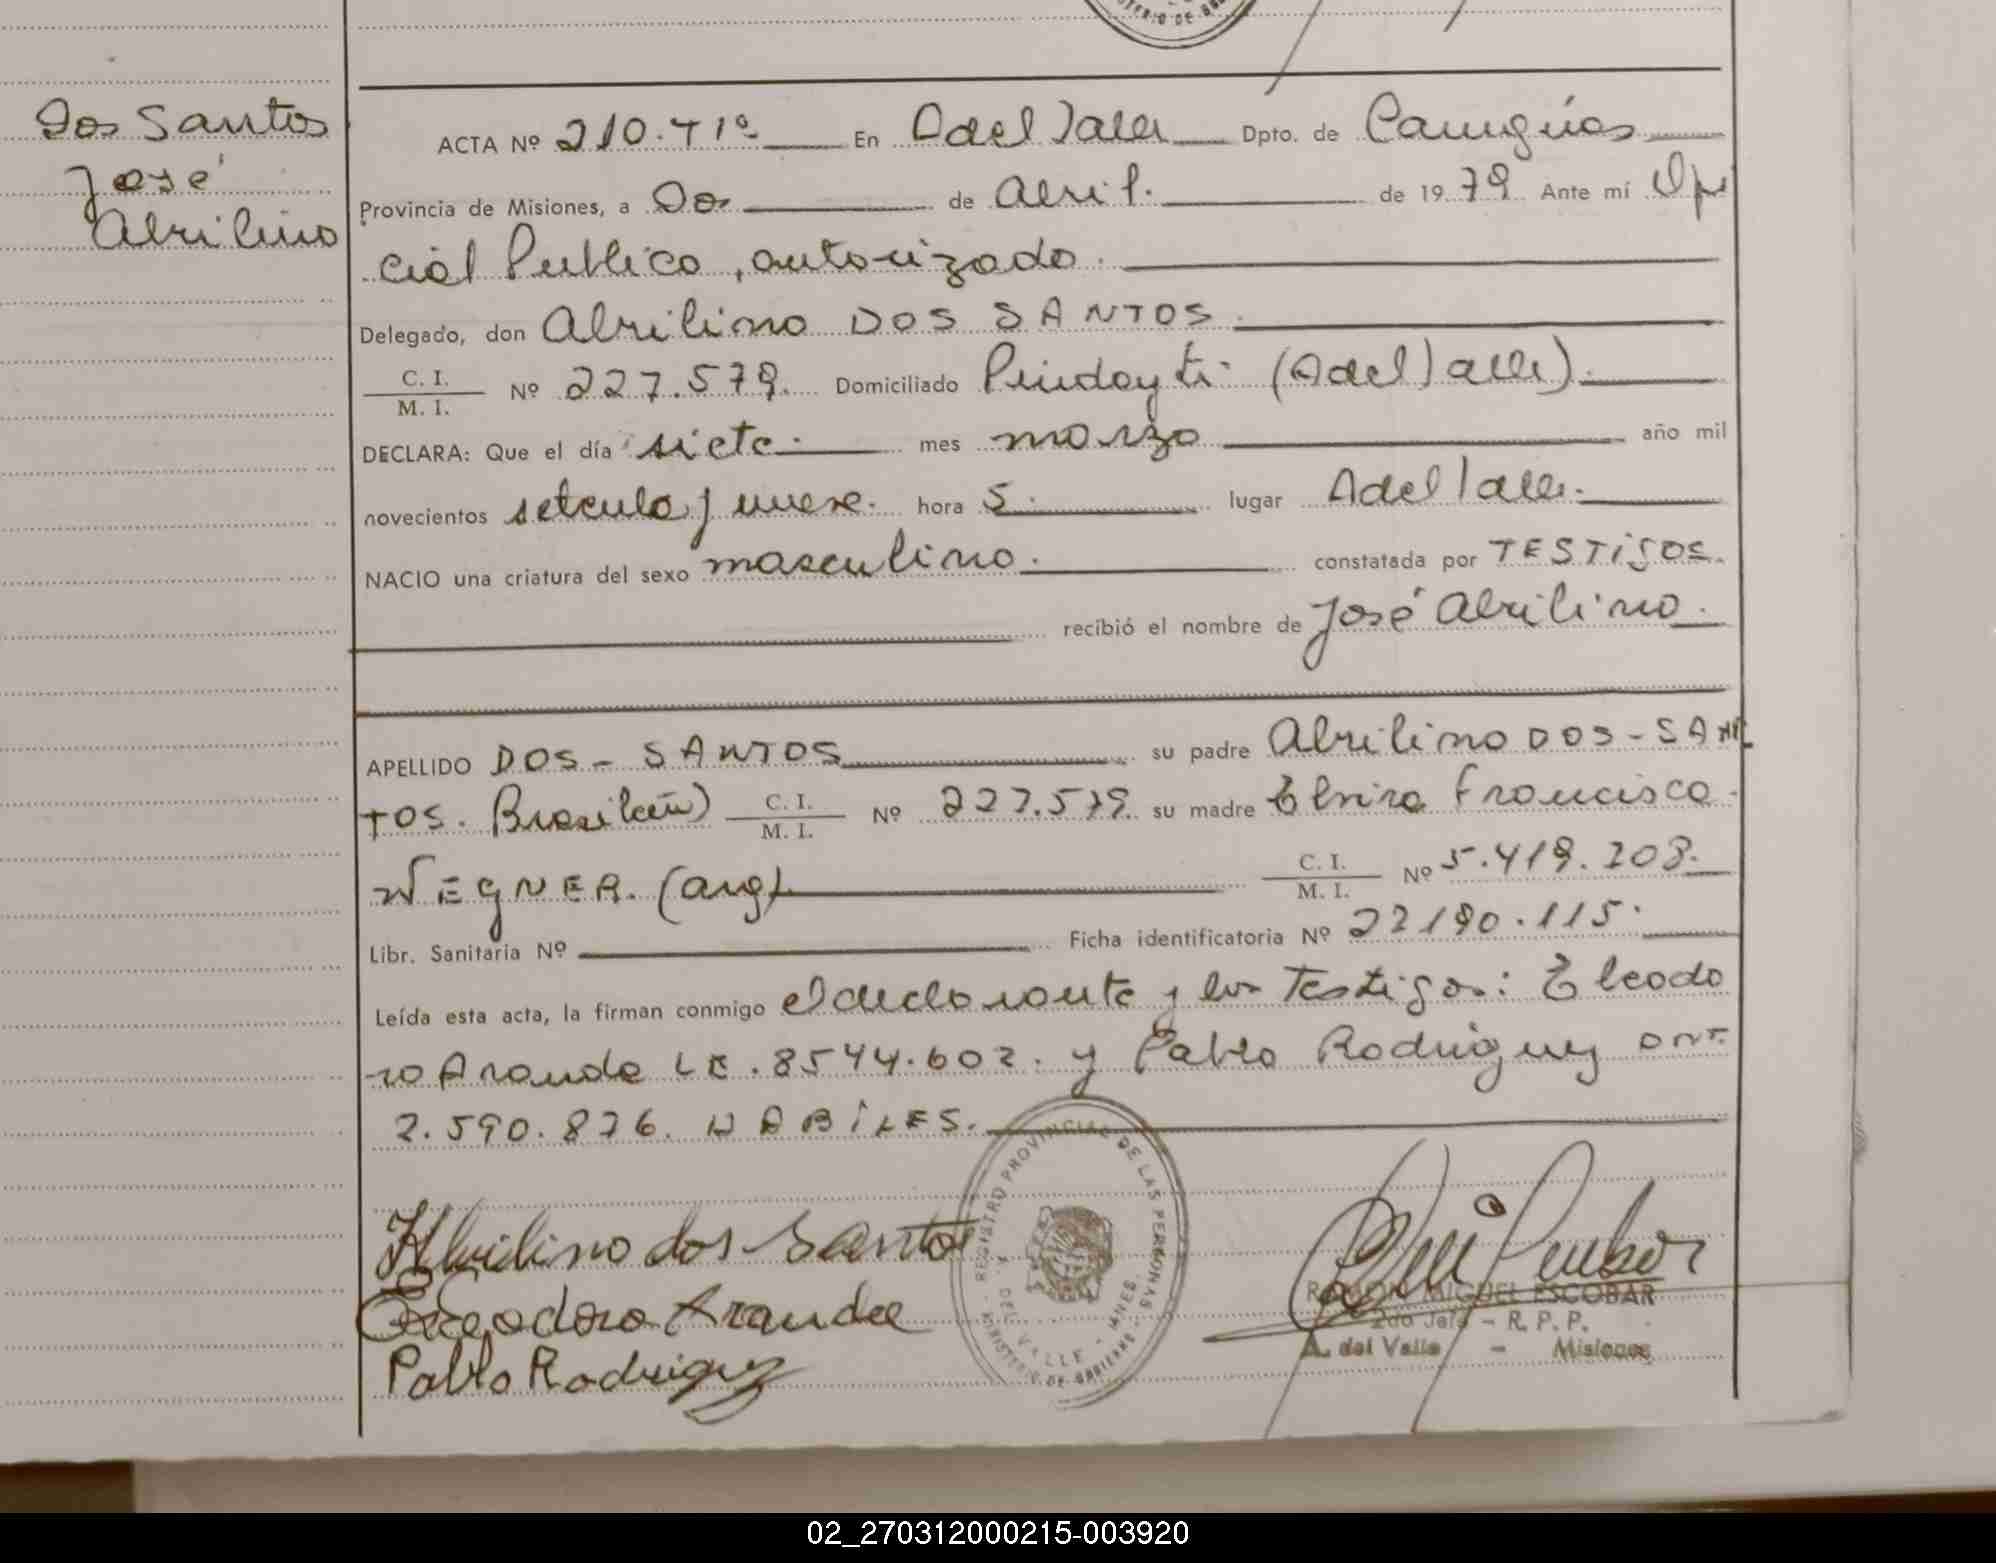 Dos Santos
José
Abrilino
ACTA Nº 210. T 1º En A del Valle Dpto. de Cainguás
Provincia de Misiones, a Dos de Abril. de 1979 Ante mí Ofi
cial Publico, autorizado.
Delegado, don Abrilino DOS SANTOS.
C. I.
M. I. Nº 227.579. Domiciliado Pindayti (A del Valle).
DECLARA: Que el día siete. mes marzo año mil
novecientos setenta y nueve. hora 5. lugar A del Valle.
NACIO una criatura del sexo masculino. constatada por TESTigos.
recibió el nombre de José Abrilino.
APELLIDO DOS - SANTOS su padre Abrilino DOS - SAN
TOS. Brasileño) C. I.
M. I. Nº 227.579. su madre Elvira Francisca
WEGNER. (arg) C. I.
M. I. Nº 5.419.208.
Libr. Sanitaria Nº Ficha identificatoria Nº 22190.115.
Leída esta acta, la firman conmigo el declarante y los Testigos: Eleodo
ro Aranda LE. 8544.602. y Pablo Rodriguez
2.590.876. HABiLES.
REGISTRO PROVINCIAL DE LAS PERSONAS
A. DEL VALLE - MNES.
MINISTERIO DE GOBIERNO
Abrilino dos Santos
Eleodoro Aranda
Pablo Rodriguez
RAMON MIGUEL ESCOBAR
2do Jefe - R. P. P.
A. del Valle - Misiones
02_270312000215-003920